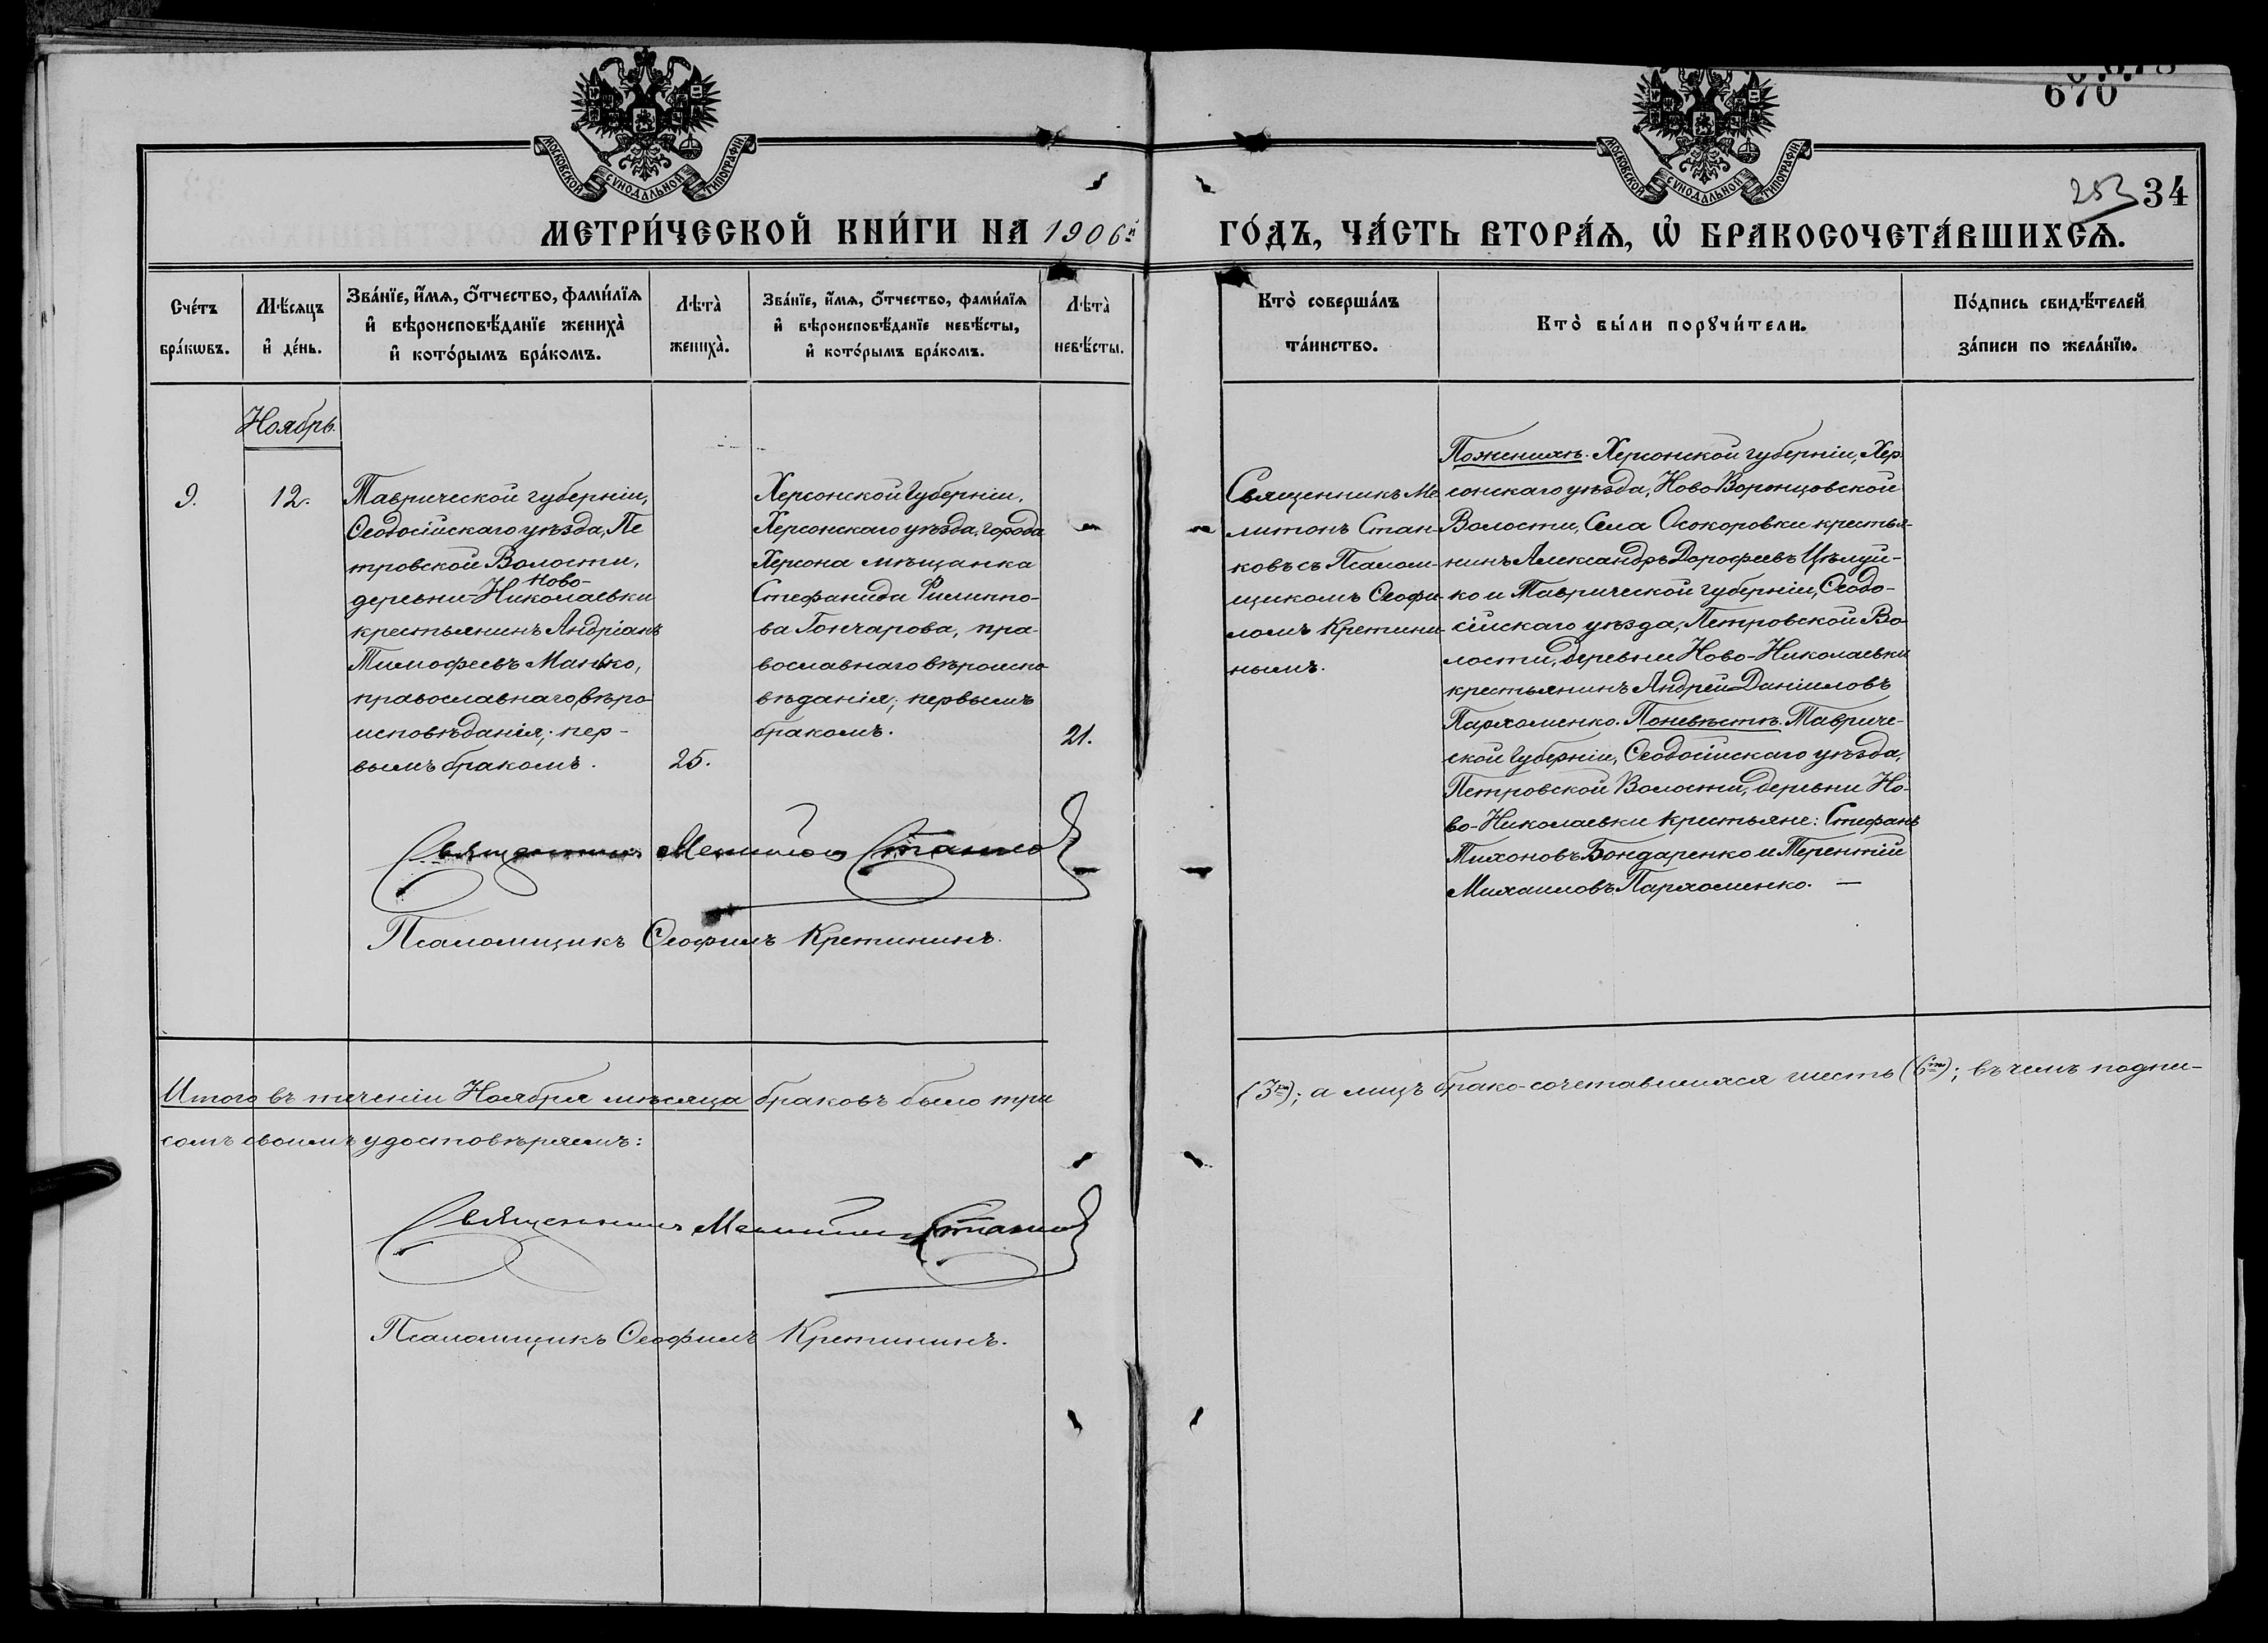 670
МОСКОВСКОЙ СУНОДАЛЬНОЙ ТИПОГРАФІИ
МОСКОВСКОЙ СУНОДАЛЬНОЙ ТИПОГРАФІИ
253 34
МЕТРИ́ЧЕСКОЙ КНИ́ГИ НА 1906й ГО́ДЪ, ЧА́СТЬ ВТОРА́Ѧ, Ѡ҆ БРАКОСОЧЕТА́ВШИХСѦ.
Сче́тъ
бра́кѡвъ.
Мѣ́сѧцъ
и҆ де́нь.
Зва́нїе, и҆́мѧ, ѻ҆́тчество, фами́лїѧ
и҆ вѣроисповѣ́данїе жениха̀
и҆ кото́рымъ бра́комъ.
Лѣта̀
жениха̀.
Зва́нїе, и҆́мѧ, ѻ҆́тчество, фами́лїѧ
и҆ вѣроисповѣ́данїе невѣ́сты,
и҆ кото́рымъ бра́комъ.
Лѣта̀
невѣ́сты.
Кто̀ соверша́лъ
та́инство.
Кто̀ бы́ли порꙋчи́тели.
По́дпись свидѣ́телей
за́писи по жела́нїю.
Ноябрь.
9.
12.
Таврической губерніи,
Ѳеодосійскаго уѣзда, Пе
тровской Волости,
Ново-
деревни-Николаевки
крестьянинъ Андріанъ
Тимофеевъ Манько,
православнаго вѣро
исповѣданія; пер-
вымъ бракомъ.
25.
Херсонской Губерніи,
Херсонскаго уѣзда, города
Херсона мѣщанка
Стефанида Филиппо-
ва Гончарова, пра-
вославнаго вѣроиспо
вѣданія; первымъ
бракомъ.
21.
Священникъ Ме
литонъ Стан-
ковъ съ Псалом-
щикомъ Ѳеофи-
ломъ Кретини-
нымъ.
По женихѣ. Херсонской губерніи, Хер
сонскаго уѣзда, Ново Воронцовской
Волости, Села Осокоровки крестья-
нинъ Александръ Дорофеевъ Цѣлуй-
ко и Таврической губерніи, Ѳеодо-
сійскаго уѣзда, Петровской Во
лости, деревни Ново-Николаевки
крестьянинъ Андрей Даніиловъ
Пархоменко. По невѣстѣ. Тавриче-
ской Губерніи, Ѳеодосійскаго уѣзда,
Петровской Волости, деревни Но-
во-Николаевки крестьяне: Стефанъ
Тихоновъ Бондаренко и Терентій
Михаиловъ Пархоменко. —
Священникъ Мелитонъ Станков
Псаломщикъ Ѳеофилъ Кретининъ.
Итого въ теченіи Ноября мѣсяца браковъ было три (3ри); а лицъ брако-сочетавшихся шесть (6ть); въ чемъ подпи-
сомъ своимъ удостовѣряемъ:
Священникъ Мелитонъ Станков
Псаломщикъ Ѳеофилъ Кретининъ.